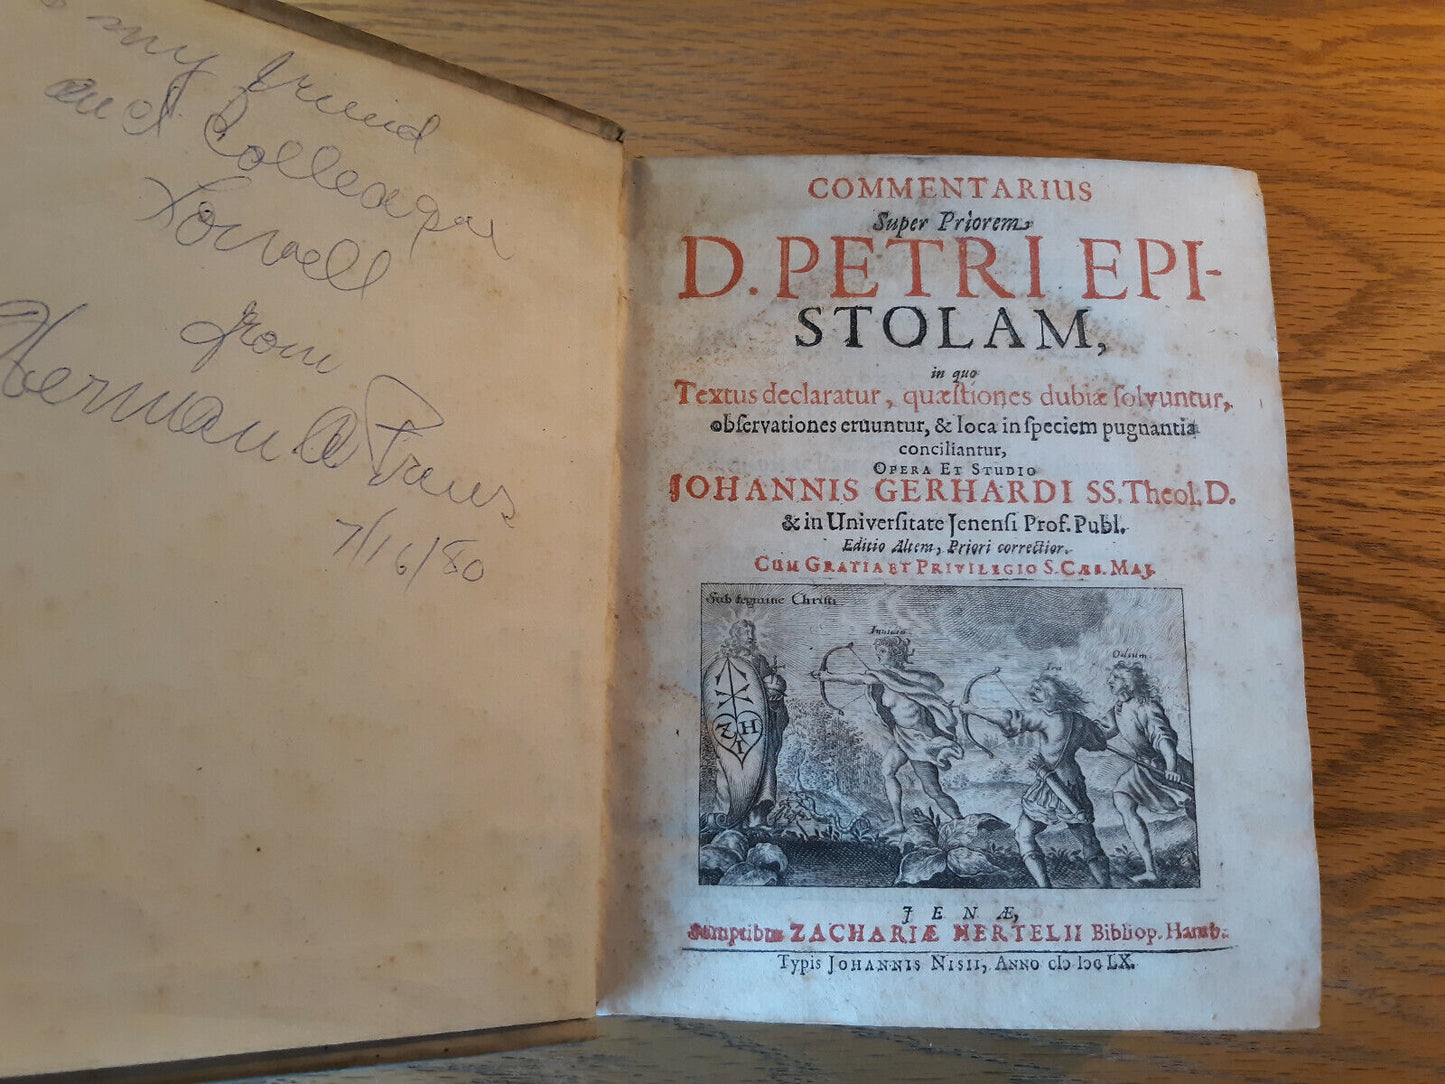 my friend
and Colleague
Lowell
from
Herman A Preus
7/16/80
COMMENTARIUS
Super Priorem
D. PETRI EPI-
STOLAM,
in quo
Textus declaratur, quæstiones dubiæ ſolvuntur,
obſervationes eruuntur, & loca in ſpeciem pugnantia
conciliantur,
OPERA ET STUDIO
JOHANNIS GERHARDI SS. Theol. D.
& in Univerſitate Jenenſi Prof. Publ.
Editio Altera, Priori correctior.
CUM GRATIA ET PRIVILEGIO S. CÆS. MAJ.
Sub tegmine Christi
Invidia
Ira
Odium
Z H
T
JENÆ,
Sumptibus ZACHARIÆ HERTELII Bibliop. Hamb.
Typis JOHANNIS NISII, ANNO cIↄ Iↄc LX.